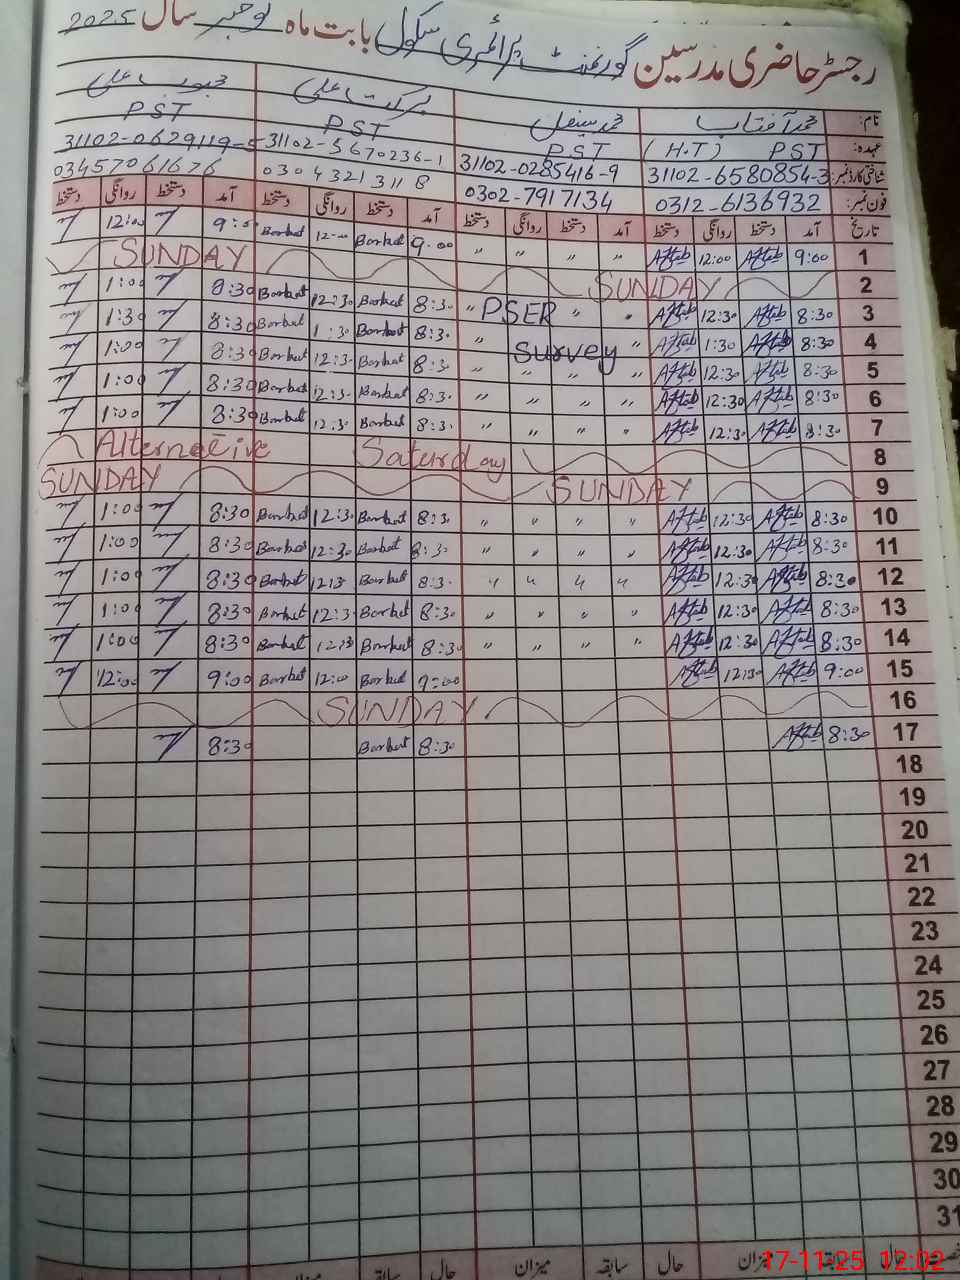 رجسٹر حاضری مدرسین گورنمنٹ پرائمری سکول بابت ماہ نومبر سال 2025
نام: محمد آفتاب برکت علی محبوب علی
عہدہ: PST (H.T) PST PST PST
شناختی کارڈ نمبر: 31102-6580854-3 31102-0285416-9 31102-5670236-1 31102-0629119-5
فون نمبر: 0312-6136932 0302-7917134 03043213118 03457061676
تاریخ آمد دستخط روانگی دستخط آمد دستخط روانگی دستخط آمد دستخط روانگی دستخط آمد دستخط روانگی دستخط
1 9:00 Aftab 12:00 Aftab " " " " 9:00 Barkat 12:00 Barkat 9:00 12:00
2 SUNDAY SUNDAY
3 8:30 Aftab 12:30 Aftab " PSER " 8:30 Barkat 12:30 Barkat 8:30 1:00
4 8:30 Aftab 1:30 Aftab " Survey " 8:30 Barkat 1:30 Barkat 8:30 1:30
5 8:30 Aftab 12:30 Aftab " " " " 8:30 Barkat 12:30 Barkat 8:30 1:00
6 8:30 Aftab 12:30 Aftab " " " " 8:30 Barkat 12:30 Barkat 8:30 1:00
7 8:30 Aftab 12:30 Aftab " " " " 8:30 Barkat 12:30 Barkat 8:30 1:00
8 Alternative Saturday
9 SUNDAY SUNDAY
10 8:30 Aftab 12:30 Aftab " " " " 8:30 Barkat 12:30 Barkat 8:30 1:00
11 8:30 Aftab 12:30 Aftab " " " " 8:30 Barkat 12:30 Barkat 8:30 1:00
12 8:30 Aftab 12:30 Aftab " " " " 8:30 Barkat 12:30 Barkat 8:30 1:00
13 8:30 Aftab 12:30 Aftab " " " " 8:30 Barkat 12:30 Barkat 8:30 1:00
14 8:30 Aftab 12:30 Aftab " " " " 8:30 Barkat 12:30 Barkat 8:30 1:00
15 9:00 Aftab 12:30 Aftab 9:00 Barkat 12:00 Barkat 9:00 12:00
16 SUNDAY
17 8:30 Aftab 8:30 Barkat 8:30
18
19
20
21
22
23
24
25
26
27
28
29
30
31
حال سابقہ میزان حال سابقہ میزان حال سابقہ
17-11-25 12:02